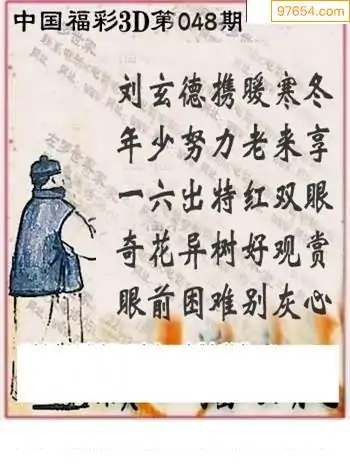 97654.com
中国福彩3D第048期
刘玄德携暖寒冬
年少努力老来享
一六出特红双眼
奇花异树好观赏
眼前困难别灰心